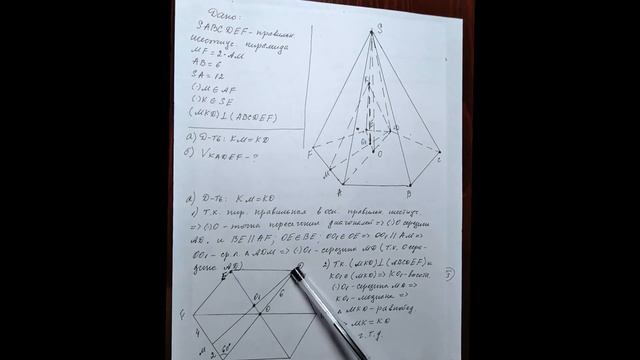 Дано:
SABCDEF - правильн.
шестиуг. пирамида
MF = 2·AM
AB = 6
SA = 12
(·) M ∈ AF
(·) K ∈ SE
(MKD) ⊥ (ABCDEF)
а) Д-ть: KM = KD
б) V KADEF - ?
S
K
E
D
F
O₁
O
C
M
A
B
а) Д-ть: KM = KD
1) Т.к. пир. правильная в осн. правильн. шестиуг.
=> (·) O - точка пересечения диагоналей => (·) O середина
AD, и BE ∥ AF; OE ∈ BE: OO₁ ∈ OE => OO₁ ∥ AM =>
OO₁ - ср. л. △ ADM => (·) O₁ - середина MD (т.к. O сере-
дина AD)
2) Т.к. (MKD) ⊥ (ABCDEF) и
KO₁ ∈ (MKD) => KO₁ - высота
(·) O₁ - середина MD =>
KO₁ - медиана =>
△ MKD - равнобед.
=> MK = KD
ч.т.д.
E
O₁
6
O
4
M
2
60°